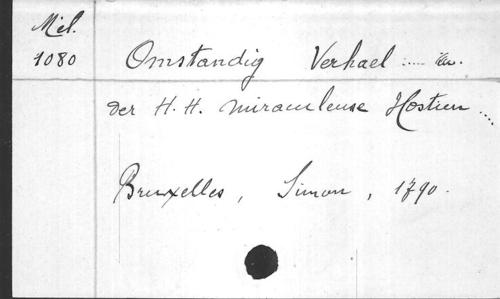 Mél.
1080 Omstandig Verhael .....
der H. H. miraculeuse Hostien ....
Bruxelles, Simon, 1790.